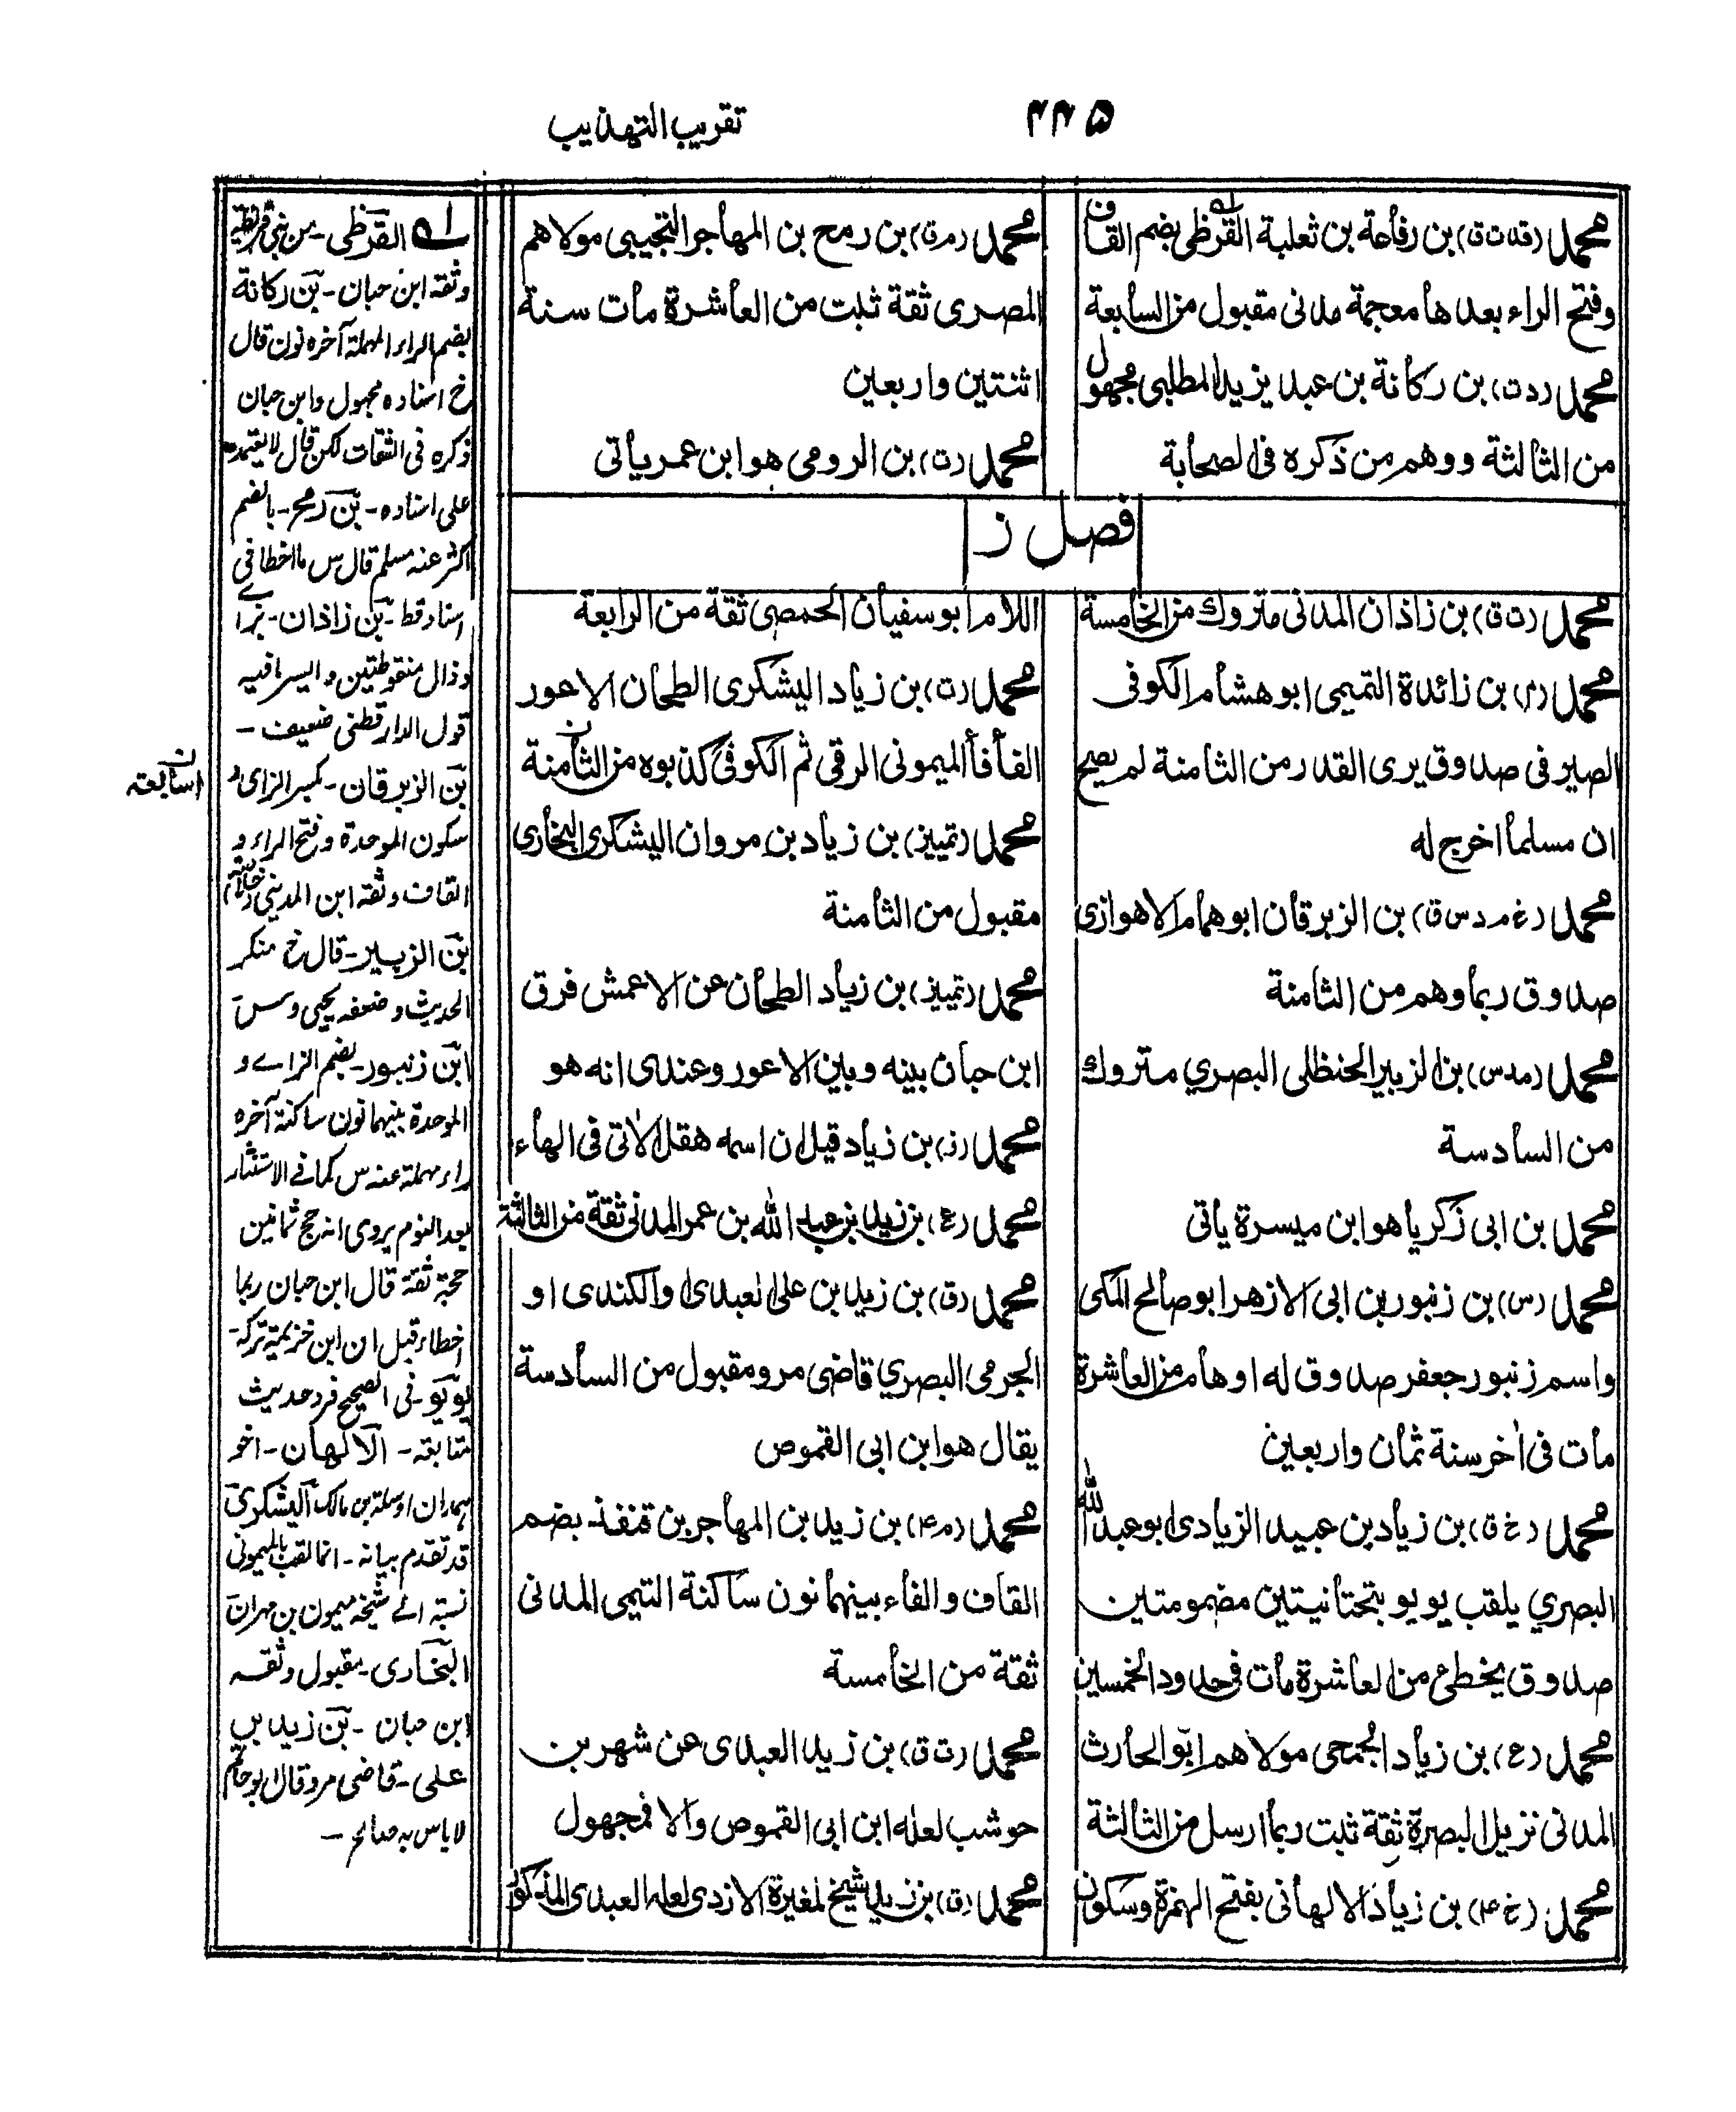 ۴۴۵
تقريب التهذيب
محمد (قد ت ق) بن رفاعة بن ثعلبة القرظى بضم القاف
وفتح الراء بعدها معجمة مدنى مقبول من السابعة
محمد (د ت) بن ركانة بن عبد يزيد المطلبى مجهول
من الثالثة ووهم من ذكره فى الصحابة
محمد (م ق) بن رمح بن المهاجر التجيبى مولاهم
المصرى ثقة ثبت من العاشرة مات سنة
اثنتين واربعين
محمد (ت) بن الرومى هو ابن عمر ياتى
فصل ز
محمد (ت ق) بن زاذان المدنى متروك من الخامسة
محمد (م) بن زائدة التميمى ابو هشام الكوفى
الصيرفى صدوق يرى القدر من الثامنة لم يصح
ان مسلما اخرج له
محمد (خ م د س ق) بن الزبرقان ابو همام الاهوازى
صدوق ربما وهم من الثامنة
محمد (مد س) بن الزبير الحنظلى البصري متروك
من السادسة
محمد بن ابى زكريا هو ابن ميسرة ياتى
محمد (س) بن زنبور بن ابى الازهر ابو صالح المكى
واسم زنبور جعفر صدوق له اوهام من العاشرة
مات فى اخر سنة ثمان واربعين
محمد (خ ق) بن زياد بن عبيد الله الزيادى ابو عبد الله
البصري يلقب يويو بتحتانيتين مضمومتين
صدوق يخطئ من العاشرة مات فى حدود الخمسين
محمد (ع) بن زياد الجمحى مولاهم ابو الحارث
المدنى نزيل البصرة ثقة ثبت ربما ارسل من الثالثة
محمد (خ ۴) بن زياد الالهانى بفتح الهمزة وسكون
اللام ابو سفيان الحمصى ثقة من الرابعة
محمد (ت) بن زياد اليشكرى الطحان الاعور
الفافا الميمونى الرقى ثم الكوفى كذبوه من الثامنة
محمد (تمييز) بن زياد بن مروان اليشكرى البخارى
مقبول من الثامنة
محمد (تمييز) بن زياد الطحان عن الاعمش فرق
ابن حبان بينه وبين الاعور وعندى انه هو
محمد (ز) بن زياد قيل ان اسمه هقل الاتى فى الهاء
محمد (ع) بن زيد بن عبد الله بن عمر المدنى ثقة من الثالثة
محمد (ق) بن زيد بن على العبدى او الكندى او
الجرمى البصري قاضى مرو مقبول من السادسة
يقال هو ابن ابى القموص
محمد (م ۴) بن زيد بن المهاجر بن قنفذ بضم
القاف والفاء بينهما نون ساكنة التيمى المدنى
ثقة من الخامسة
محمد (ت ق) بن زيد العبدى عن شهر بن
حوشب لعله ابن ابى القموص والا فمجهول
محمد (ق) بن زيد شيخ لمغيرة الازدى لعله العبدى المذكور
له القرظى - من بنى قريظة
وثقه ابن حبان - بن ركانة
بضم الراء المهملة آخره نون قال
خ اسناده مجهول وابن حبان
ذكره فى الثقات لكن قال لا يعتمد
على اسناده - بن رمح - بالضم
اكثر عنه مسلم قال س ما اخطا فى
اسناد قط - بن زاذان - بزاے
وذال منقوطتين و اليسر فيه
قول الدار قطنى ضعيف -
بن الزبرقان - بكسر الزاى و
سكون الموحدة وفتح الراء و
القاف وثقه ابن المدينى
بن الزبير - قال خ منكر
الحديث وضعفه يحيى و س
ابن زنبور - بضم الزاے و
الموحدة بينهما نون ساكنة آخره
راء مهملة عنه س كما فے الاستنثار
بعد النوم يروى انه حج ثمانين
حجة ثقة قال ابن حبان ربما
اخطاء قيل ان ابن خزيمة تركه
يويو - فى الصحيح فرد حديث
متابعة - الالهان - اخو
همدان اوسلة بن مالك اليشكرى
قد تقدم بيانه - انما لقب بالميمونى
نسبة الے شيخه ميمون بن مهران
البخارى - مقبول وثقه
ابن حبان - بن زيد بن
على - قاضى مرو قال ابو حاتم
لا باس به صالح -